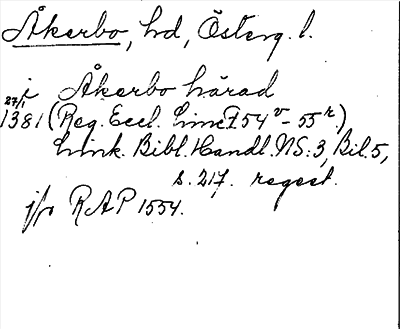 Åkerbo, hd, Österg. l.
i Åkerbo härad
27/1
1381 (Reg. Eccl. Linc. f. 54v - 55r.)
Link. Bibl. Handl. NS: 3, Bil. 5,
s. 217. regest.
jfr RAP 1554.